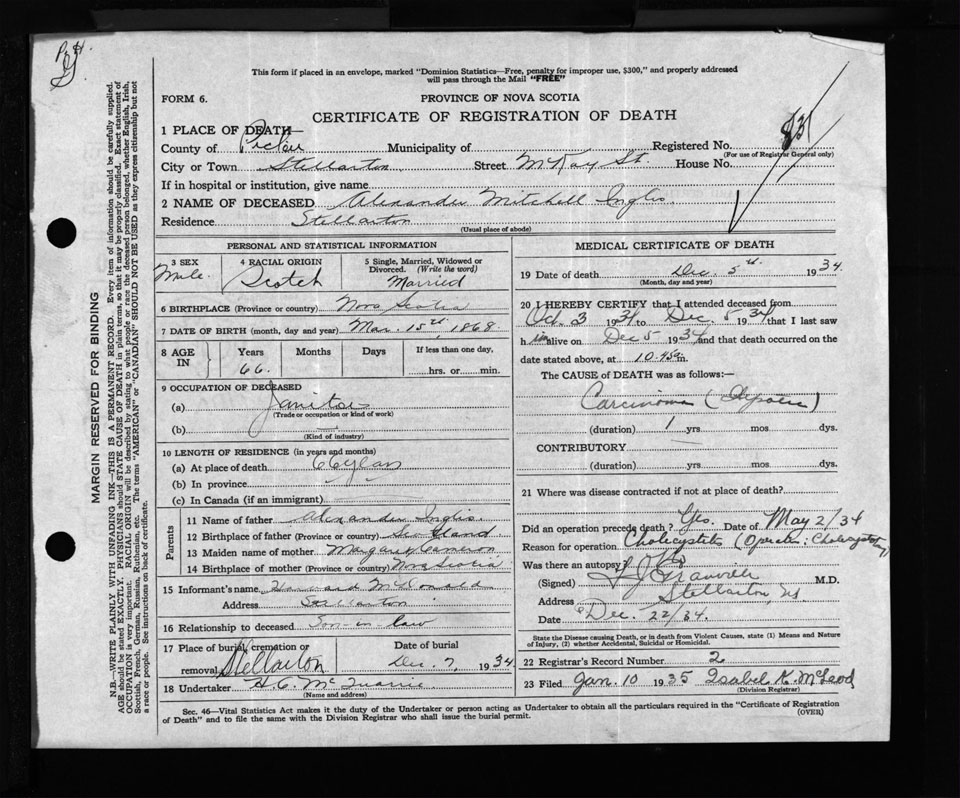 This form if placed in an envelope, marked "Dominion Statistics—Free, penalty for improper use, $300," and properly addressed
will pass through the Mail "FREE"
FORM 6.
PROVINCE OF NOVA SCOTIA
CERTIFICATE OF REGISTRATION OF DEATH
1 PLACE OF DEATH—
County of Pictou Municipality of Registered No. 831
(For use of Registrar General only)
City or Town Stellarton Street McKay St. House No.
If in hospital or institution, give name
2 NAME OF DECEASED Alexander Mitchell Inglis
Residence Stellarton
(Usual place of abode)
MARGIN RESERVED FOR BINDING
N.B.—WRITE PLAINLY WITH UNFADING INK—THIS IS A PERMANENT RECORD. Every item of information should be carefully supplied.
AGE should be stated EXACTLY. PHYSICIANS should STATE CAUSE OF DEATH in plain terms, so that it may be properly classified. Exact statement of
OCCUPATION is very important. RACIAL ORIGIN will be described by stating to what people or race the deceased person belonged, whether English, Irish,
Scottish, French, German, Russian, Ruthenian, etc. The terms "AMERICAN" or "CANADIAN" SHOULD NOT BE USED as they express citizenship but not
a race or people. See instructions on back of certificate.
PERSONAL AND STATISTICAL INFORMATION
3 SEX
Male.
4 RACIAL ORIGIN
Scotch
5 Single, Married, Widowed or
Divorced. (Write the word)
Married
6 BIRTHPLACE (Province or country) Nova Scotia
7 DATE OF BIRTH (month, day and year) Mar. 15th, 1868
8 AGE IN
Years
66.
Months
Days
If less than one day,
hrs. or min.
9 OCCUPATION OF DECEASED
(a) Janitor
(Trade or occupation or kind of work)
(b)
(Kind of industry)
10 LENGTH OF RESIDENCE (in years and months)
(a) At place of death 66 years
(b) In province
(c) In Canada (if an immigrant)
Parents
11 Name of father Alexander Inglis.
12 Birthplace of father (Province or country) Scotland
13 Maiden name of mother Margaret Cameron
14 Birthplace of mother (Province or country) Nova Scotia
15 Informant's name Howard McDonald
Address Stellarton
16 Relationship to deceased Son-in-law
17 Place of burial, cremation or
removal Stellarton
Date of burial
Dec. 7, 1934
18 Undertaker H.C. McQuarrie
(Name and address)
MEDICAL CERTIFICATE OF DEATH
19 Date of death Dec. 5th 1934
(Month, day and year)
20 I HEREBY CERTIFY that I attended deceased from
Oct. 3 1934 to Dec. 5 1934 that I last saw
him alive on Dec 5 1934 and that death occurred on the
date stated above, at 10.45 a m.
The CAUSE of DEATH was as follows:—
Carcinoma
(duration) 1 yrs mos dys.
CONTRIBUTORY
(duration) yrs mos dys.
21 Where was disease contracted if not at place of death?
Did an operation precede death? Yes. Date of May 2/34
Reason for operation Cholecystitis (Operation: Cholecystotomy
Was there an autopsy? No
(Signed) Granville M.D.
Address Stellarton, N.S.
Date Dec. 22/34.
State the Disease causing Death, or in death from Violent Causes, state (1) Means and Nature
of Injury, (2) whether Accidental, Suicidal or Homicidal.
22 Registrar's Record Number 2
23 Filed Jan. 10 1935 Isabel K. McLeod
(Division Registrar)
Sec. 46—Vital Statistics Act makes it the duty of the Undertaker or person acting as Undertaker to obtain all the particulars required in the "Certificate of Registration
of Death" and to file the same with the Division Registrar who shall issue the burial permit.
(OVER)